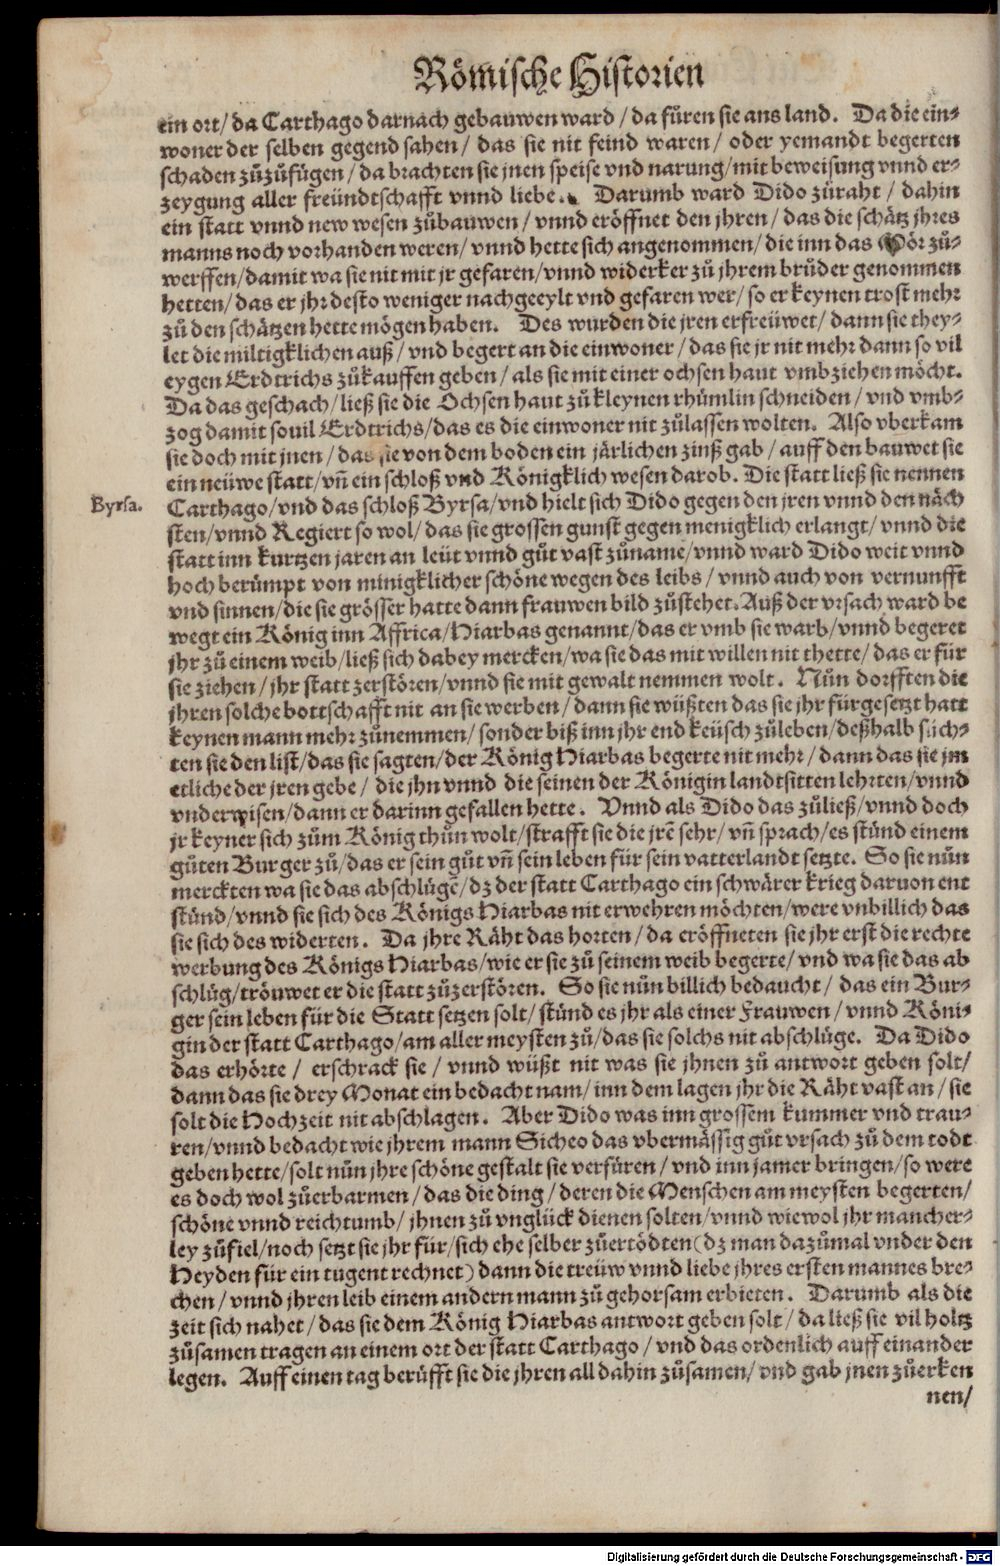 Römische Historien
ein ort/ da Carthago darnach gebauwen ward / da fůren sie ans land. Da die ein-
woner der selben gegend sahen / das sie nit feind waren / oder yemandt begerten
schaden zůzůfügen / da brachten sie jnen speise vnd narung/ mit beweisung vnnd er-
zeygung aller freündtschafft vnnd liebe. Darumb ward Dido zůraht / dahin
ein statt vnnd new wesen zůbauwen / vnnd eröffnet den jhren / das die schätz jhres
manns noch vorhanden weren / vnnd hette sich angenommen / die inn das Mör zů-
werffen / damit wa sie nit mit jr gefaren/ vnnd widerker zů jhrem brůder genommen
hetten / das er jhr desto weniger nachgeeylt vnd gefaren wer / so er keynen trost mehr
zů den schätzen hette mögen haben. Des wurden die jren erfreüwet / dann sie they-
let die miltigklichen auß / vnd begert an die einwoner / das sie jr nit mehr dann so vil
eygen Erdtrichs zůkauffen geben / als sie mit einer ochsen haut vmbziehen möcht.
Da das geschach / ließ sie die Ochsen haut zů kleynen rhümlin schneiden / vnd vmb-
zog damit souil Erdtrichs / das es die einwoner nit zůlassen wolten. Also vberkam
sie doch mit jnen / das sie von dem boden ein järlichen zinß gab / auff den bauwet sie
ein neüwe statt / vn̄ ein schloß vnd Königklich wesen darob. Die statt ließ sie nennen
Byrsa.
Carthago / vnd das schloß Byrsa / vnd hielt sich Dido gegen den jren vnnd den näch
sten / vnnd Regiert so wol / das sie grossen gunst gegen menigklich erlangt / vnnd die
statt inn kurtzen jaren an leüt vnnd gůt vast zůname / vnnd ward Dido weit vnnd
hoch berümpt von minigklicher schöne wegen des leibs / vnnd auch von vernunfft
vnd sinnen / die sie grösser hatte dann frauwen bild zůstehet. Auß der vrsach ward be
wegt ein König inn Affrica / Hiarbas genannt / das er vmb sie warb / vnnd begeret
jhr zů einem weib / ließ sich dabey mercken / wa sie das mit willen nit thette / das er für
sie ziehen / jhr statt zerstören / vnnd sie mit gewalt nemmen wolt. Nůn dorfften die
jhren solche bottschafft nit an sie werben / dann sie wüßten das sie jhr fürgesetzt hatt
keynen mann mehr zůnemmen / sonder biß inn jhr end keüsch zůleben / deßhalb sůch-
ten sie den list / das sie sagten / der König Hiarbas begerte nit mehr / dann das sie jm
etliche der jren gebe / die jhn vnnd die seinen der Königin landtsitten lehrten / vnnd
vnderwisen / dann er darinn gefallen hette. Vnnd als Dido das zůließ / vnnd doch
jr keyner sich zům König thůn wolt / strafft sie die jrē sehr / vn̄ sprach / es stůnd einem
gůten Burger zů / das er sein gůt vn̄ sein leben für sein vatterlandt setzte. So sie nůn
merckten wa sie das abschlůgē / dz der statt Carthago ein schwärer krieg daruon ent
stůnd / vnnd sie sich des Königs Hiarbas nit erwehren möchten / were vnbillich das
sie sich des widerten. Da jhre Räht das horten / da eröffneten sie jhr erst die rechte
werbung des Königs Hiarbas / wie er sie zů seinem weib begerte / vnd wa sie das ab
schlüg / tröuwet er die statt zůzerstören. So sie nůn billich bedaucht / das ein Bur-
ger sein leben für die Statt setzen solt / stůnd es jhr als einer Frauwen / vnnd Köni-
gin der statt Carthago / am aller meysten zů / das sie solchs nit abschlüge. Da Dido
das erhörte / erschrack sie / vnnd wüßt nit was sie jhnen zů antwort geben solt /
dann das sie drey Monat ein bedacht nam / inn dem lagen jhr die Räht vast an / sie
solt die Hochzeit nit abschlagen. Aber Dido was inn grossem kummer vnd trau-
ren / vnnd bedacht wie jhrem mann Sicheo das vbermässig gůt vrsach zů dem todt
geben hette / solt nůn jhre schöne gestalt sie verfüren / vnd inn jamer bringen / so were
es doch wol zůerbarmen / das die ding / deren die Menschen am meysten begerten /
schöne vnnd reichtumb / jhnen zů vnglück dienen solten / vnnd wiewol jhr mancher-
ley zůfiel / noch setzt sie jhr für / sich ehe selber zůertödten (dz man dazůmal vnder den
Heyden für ein tugent rechnet) dann die treüw vnnd liebe jhres ersten mannes bre-
chen / vnnd jhren leib einem andern mann zů gehorsam erbieten. Darumb als die
zeit sich nahet / das sie dem König Hiarbas antwort geben solt / da ließ sie vil holtz
zůsamen tragen an einem ort der statt Carthago / vnd das ordenlich auff einander
legen. Auff einen tag berůfft sie die jhren all dahin zůsamen / vnd gab jnen zůerken
nen /
Digitalisierung gefördert durch die Deutsche Forschungsgemeinschaft - DFG